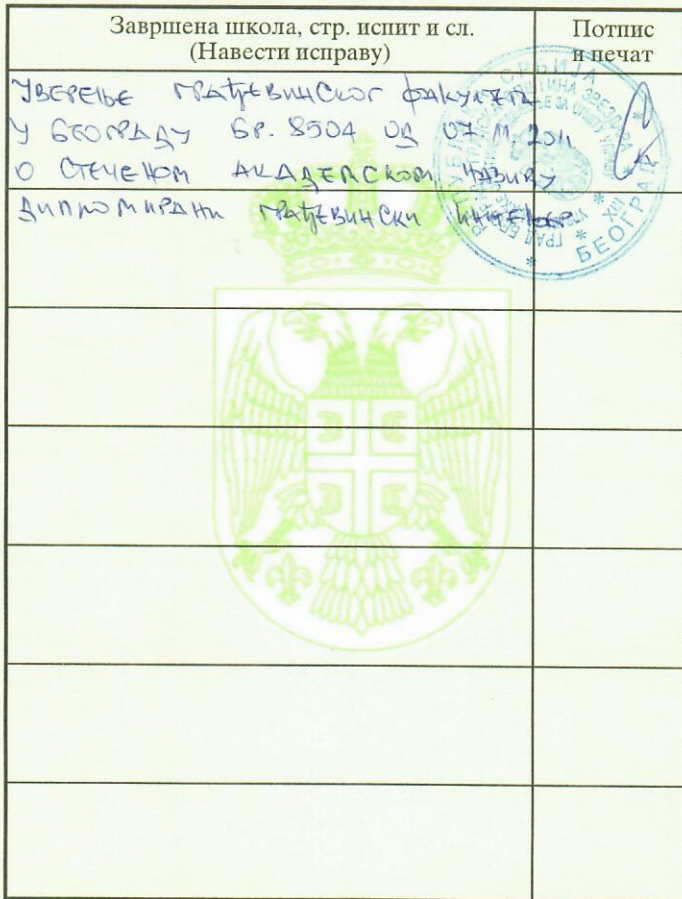 Завршена школа, стр. испит и сл.
(Навести исправу)
Потпис
и печат
УВЕРЕЊЕ ГРАЂЕВИНСКОГ ФАКУЛТЕТА
У БЕОГРАДУ БР. 8504 ОД 07.11.2011
О СТЕЧЕНОМ АКАДЕМСКОМ НАЗИВУ
ДИПЛОМИРАНИ ГРАЂЕВИНСКИ ИНЖЕЊЕР
СРБИЈА
ЗВЕЗДАРА
ЗА ОПШТУ УПРАВУ
ГРАД
XIII
БЕОГРАД